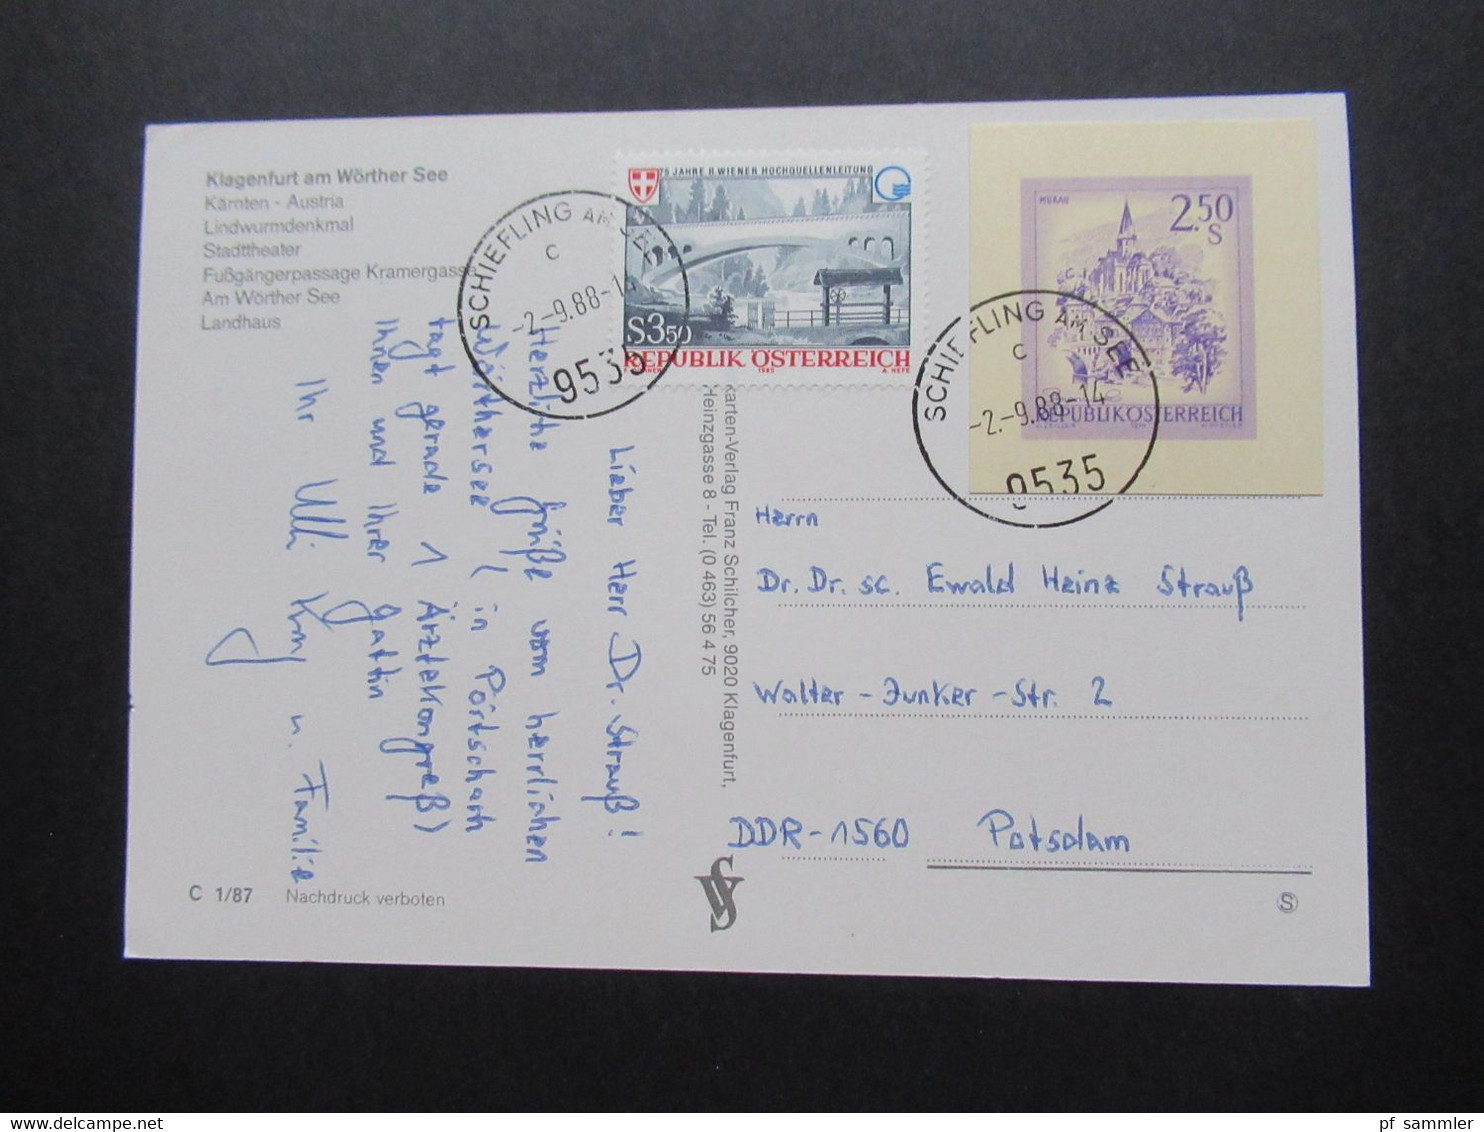 Klagenfurt am Wörther See
Kärnten - Austria
Lindwurmdenkmal
Stadttheater
Fußgängerpassage Kramergasse
Am Wörther See
Landhaus
75 JAHRE II. WIENER HOCHQUELLENLEITUNG
S3.50
REPUBLIK ÖSTERREICH
1985
SCHIEFLING AM SEE
c
-2.-9.88-14
9535
MURAU
2.50
S
REPUBLIK ÖSTERREICH
SCHIEFLING AM SEE
c
-2.-9.88-14
9535
Lieber Herr Dr. Strauß!
Herzliche Grüße vom herrlichen
Wörthersee (in Pörtschach
tagt gerade 1 Ärztekongreß)
Ihnen und Ihrer Gattin
Ihr u. Familie
Karten-Verlag Franz Schilcher, 9020 Klagenfurt,
Heinzgasse 8 - Tel. (0 463) 56 4 75
Herrn
Dr. Dr. sc. Ewald Heinz Strauß
Walter-Junker-Str. 2
DDR-1560 Potsdam
C 1/87 Nachdruck verboten
S
pf sammler